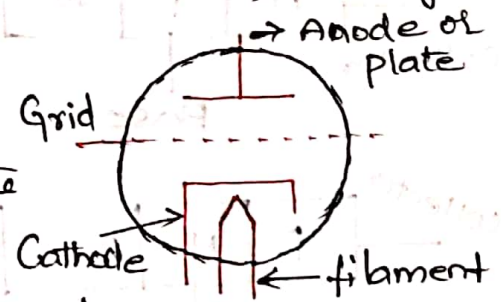 Anode or
plate
Grid
Cathode
filament